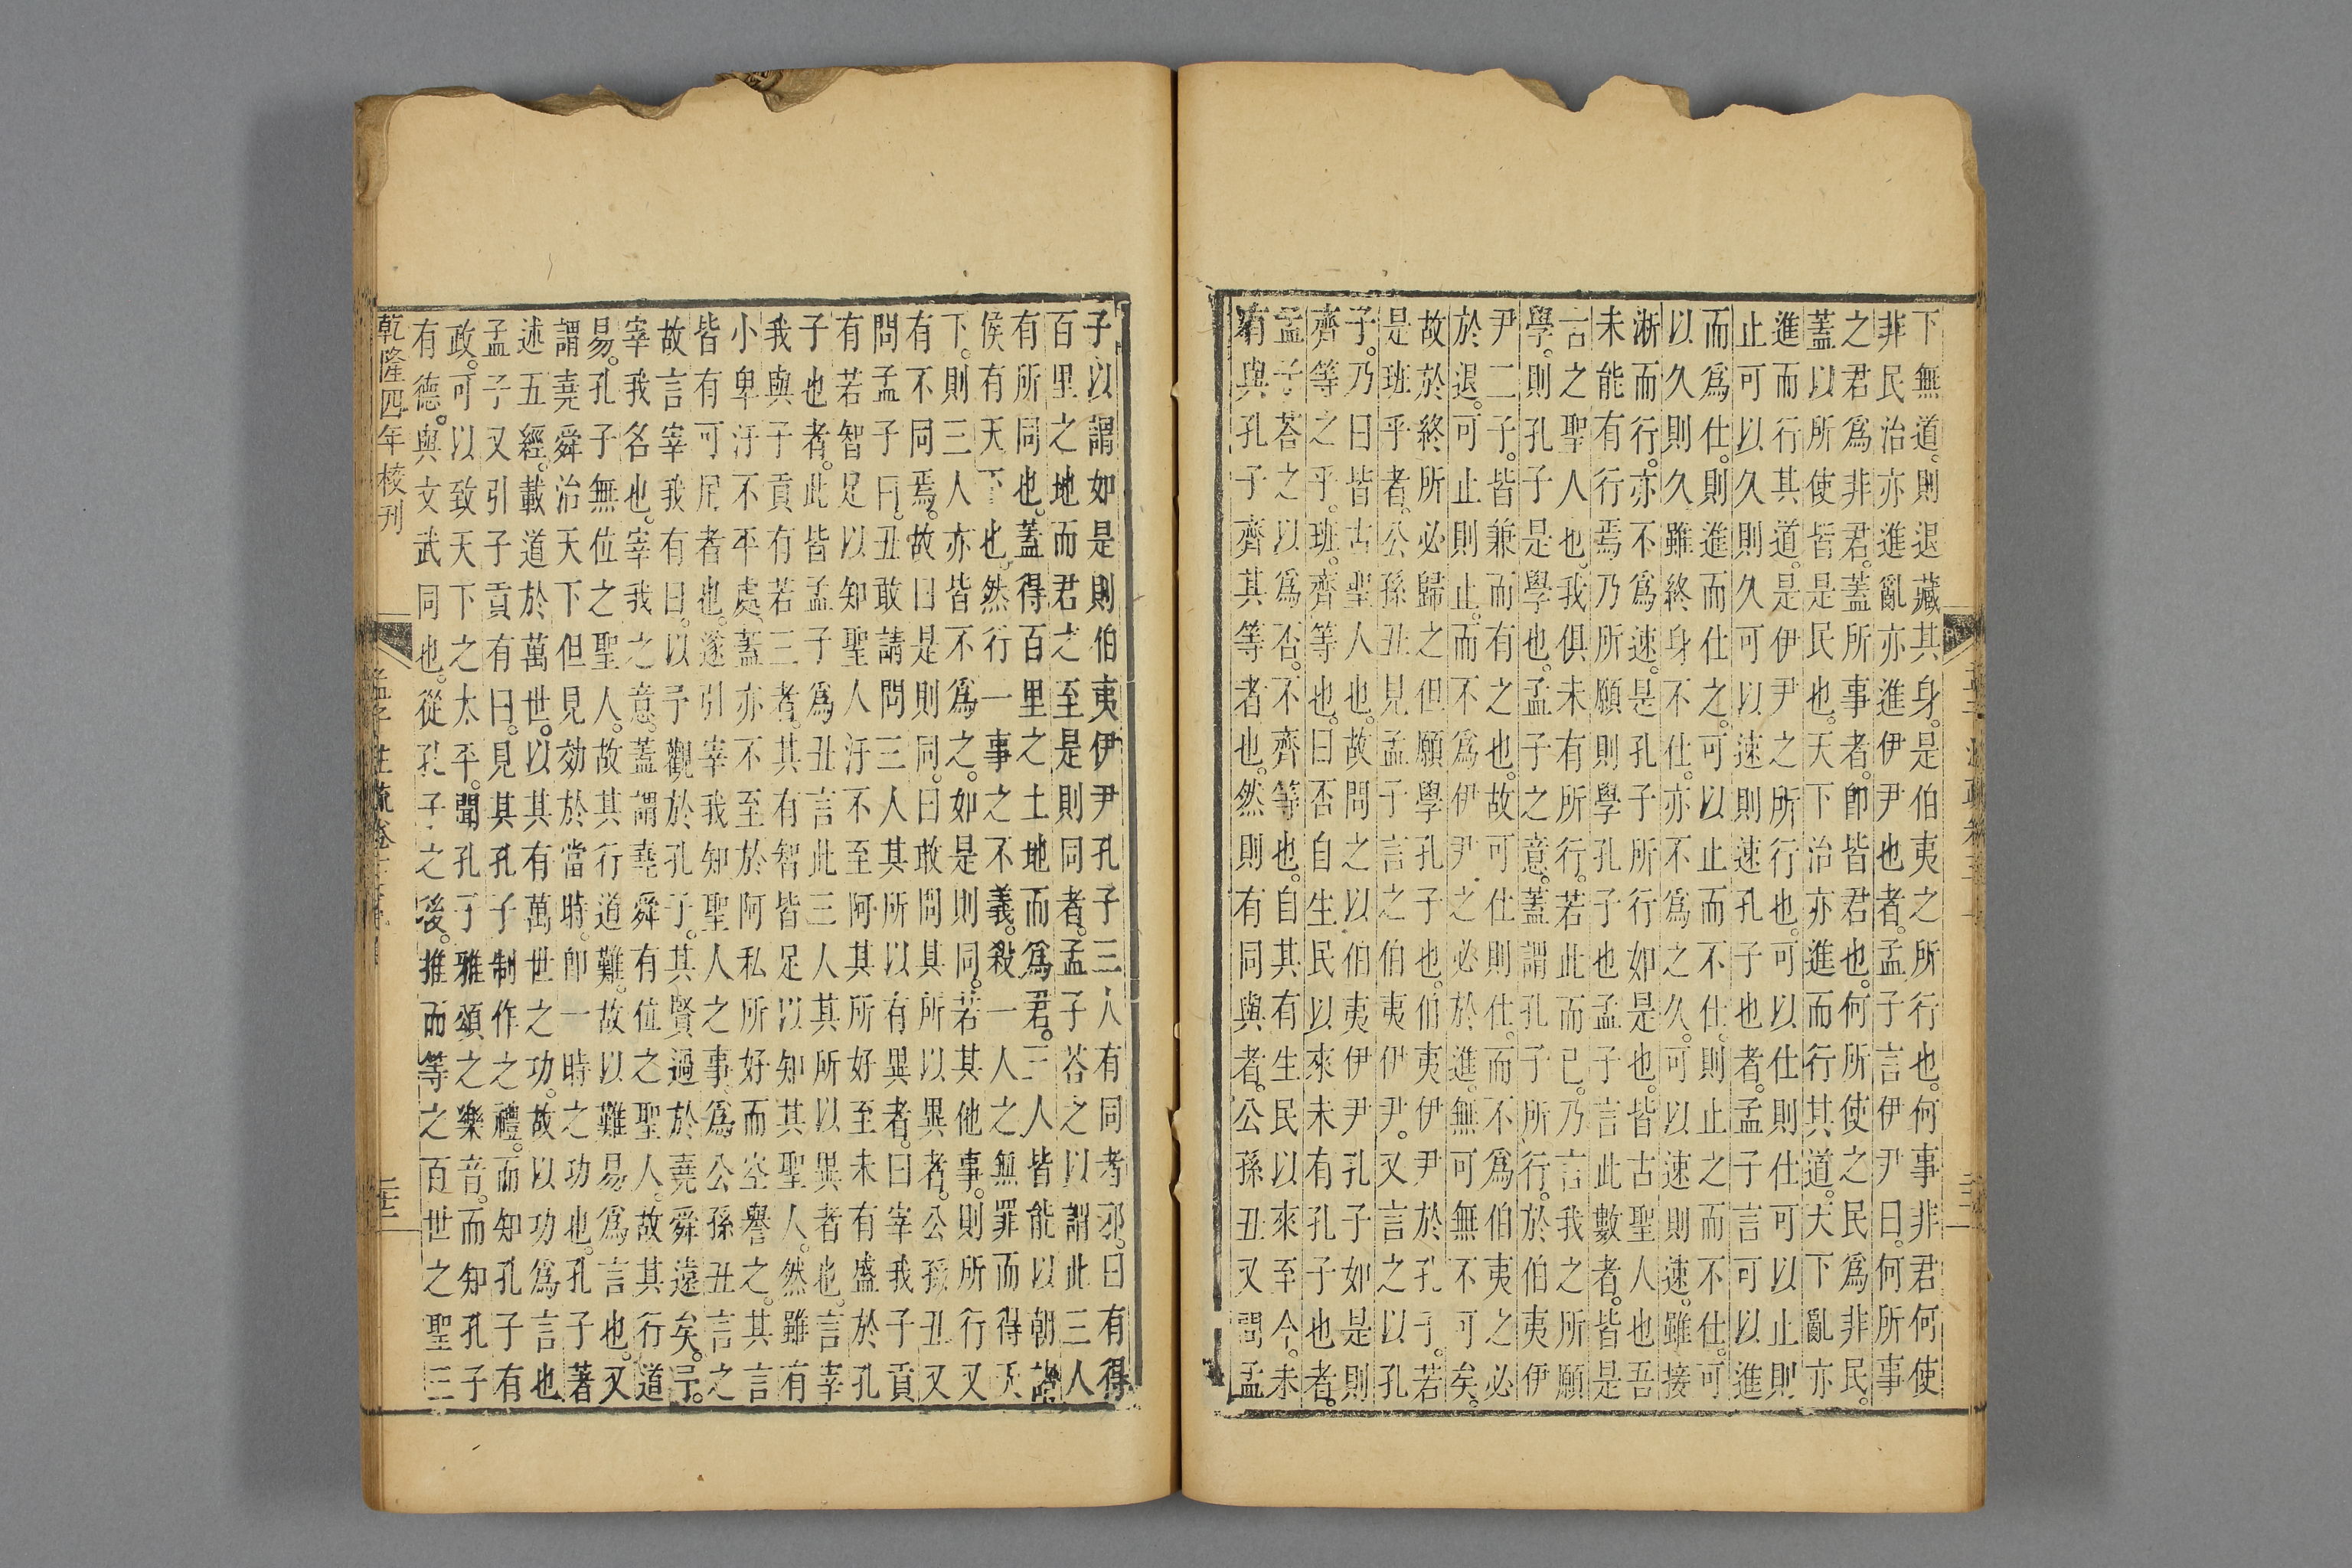 下無道。則退藏其身。是伯夷之所行也。何事非君何使
非民治亦進亂亦進伊尹也者。孟子言伊尹曰。何所事
之君爲非君。蓋所事者。卽皆君也。何所使之民爲非民。
蓋以所使皆是民也。天下治亦進而行其道。天下亂亦
進而行其道。是伊尹之所行也。可以仕則仕可以止則
止可以久則久可以速則速孔子也者。孟子言可以進
而爲仕。則進而仕之。可以止而不仕。則止之而不仕。可
以久則久雖終身不仕。亦不爲之久。可以速則速。雖接
淅而行。亦不爲速。是孔子所行如是也。皆古聖人也吾
未能有行焉乃所願則學孔子也孟子言此數者。皆是
古之聖人也。我俱未有所行。若此而已。乃言我之所願
學。則孔子是學也。孟子之意。蓋謂孔子所行。於伯夷伊
尹二子。皆兼而有之也。故可仕則仕。而不爲伯夷之必
於退。可止則止。而不爲伊尹之必於進。無可無不可矣。
故於終所必歸之但願學孔子也。伯夷伊尹於孔子。若
是班乎者。公孫丑見孟子言之伯夷伊尹。又言之以孔
子。乃曰皆古聖人也。故問之以伯夷伊尹孔子如是則
齊等之乎。班。齊等也。曰否自生民以來未有孔子也者。
孟子荅之以爲否。不齊等也。自其有生民以來至今。未
有與孔子齊其等者也。然則有同與者。公孫丑又問孟
子以謂如是則伯夷伊尹孔子三人有同者邪。曰有得
百里之地而君之至是則同者。孟子荅之以謂此三人
有所同也。蓋得百里之土地而爲君。三人皆能以朝諸
侯有天下也。然行一事之不義。殺一人之無罪而得天
下。則三人亦皆不爲之。如是則同。若其他事。則所行又
有不同焉。故曰是則同。曰敢問其所以異者。公孫丑又
問孟子曰。丑敢請問三人其所以有異者。曰宰我子貢
有若智足以知聖人汙不至阿其所好至未有盛於孔
子也者。此皆孟子爲丑言此三人其所以異者也。言宰
我與子貢有若三者。其有智皆足以知其聖人。然雖有
小卑汙不平處。蓋亦不至於阿私所好而空譽之。其言
皆有可尾者也。遂引宰我知聖人之事爲公孫丑言之
故言宰我有曰。以予觀於孔子。其賢過於堯舜遠矣。予。
宰我名也。宰我之意。蓋謂堯舜有位之聖人。故其行道
易。孔子無位之聖人。故其行道難。故以難易爲言也。又
謂堯舜治天下但見効於當時。卽一時之功也。孔子著
述五經。載道於萬世。以其有萬世之功。故以功爲言也
孟子又引子貢有曰。見其孔子制作之禮。而知孔子有
政。可以致天下之太平。聞孔子雅頌之樂音。而知孔子
有德。與文武同也。從孔子之後。推而等之百世之聖三
乾隆四年校刊